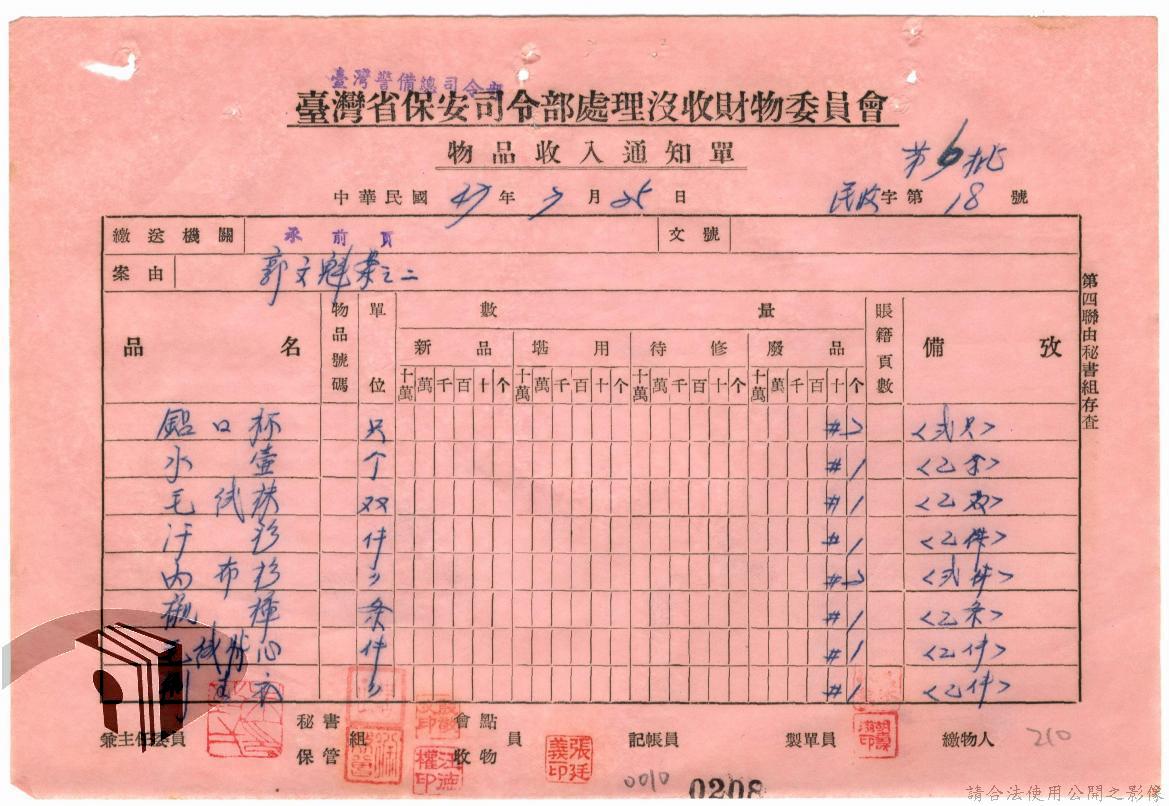 臺灣警備總司令部
臺灣省保安司令部處理沒收財物委員會
物品收入通知單
第6批
中華民國 47 年 7 月 25 日 民收字第 18 號
繳送機關 承前頁 文號
案由 郭文魁案之二
品名 物品號碼 單位 數量 賬籍頁數 備攷
新品 堪用 待修 廢品
十萬 萬 千 百 十 个 十萬 萬 千 百 十 个 十萬 萬 千 百 十 个 十萬 萬 千 百 十 个
鋁口杯 只 #2 <弍只>
水壺 个 #1 <乙个>
毛線袜 双 #1 <乙双>
汗衫 件 #1 <乙件>
內布衫 〃 #2 <弍件>
襯褲 条 #1 <乙条>
毛線背心 件 #1 <乙件>
〃 #1 <乙件>
第四聯由秘書組存查
兼主任委員 秘書組 保管 會點 收物 員 記帳員 製單員 繳物人
張廷義印
汪德權印
210
0010
0208
請合法使用公開之影像